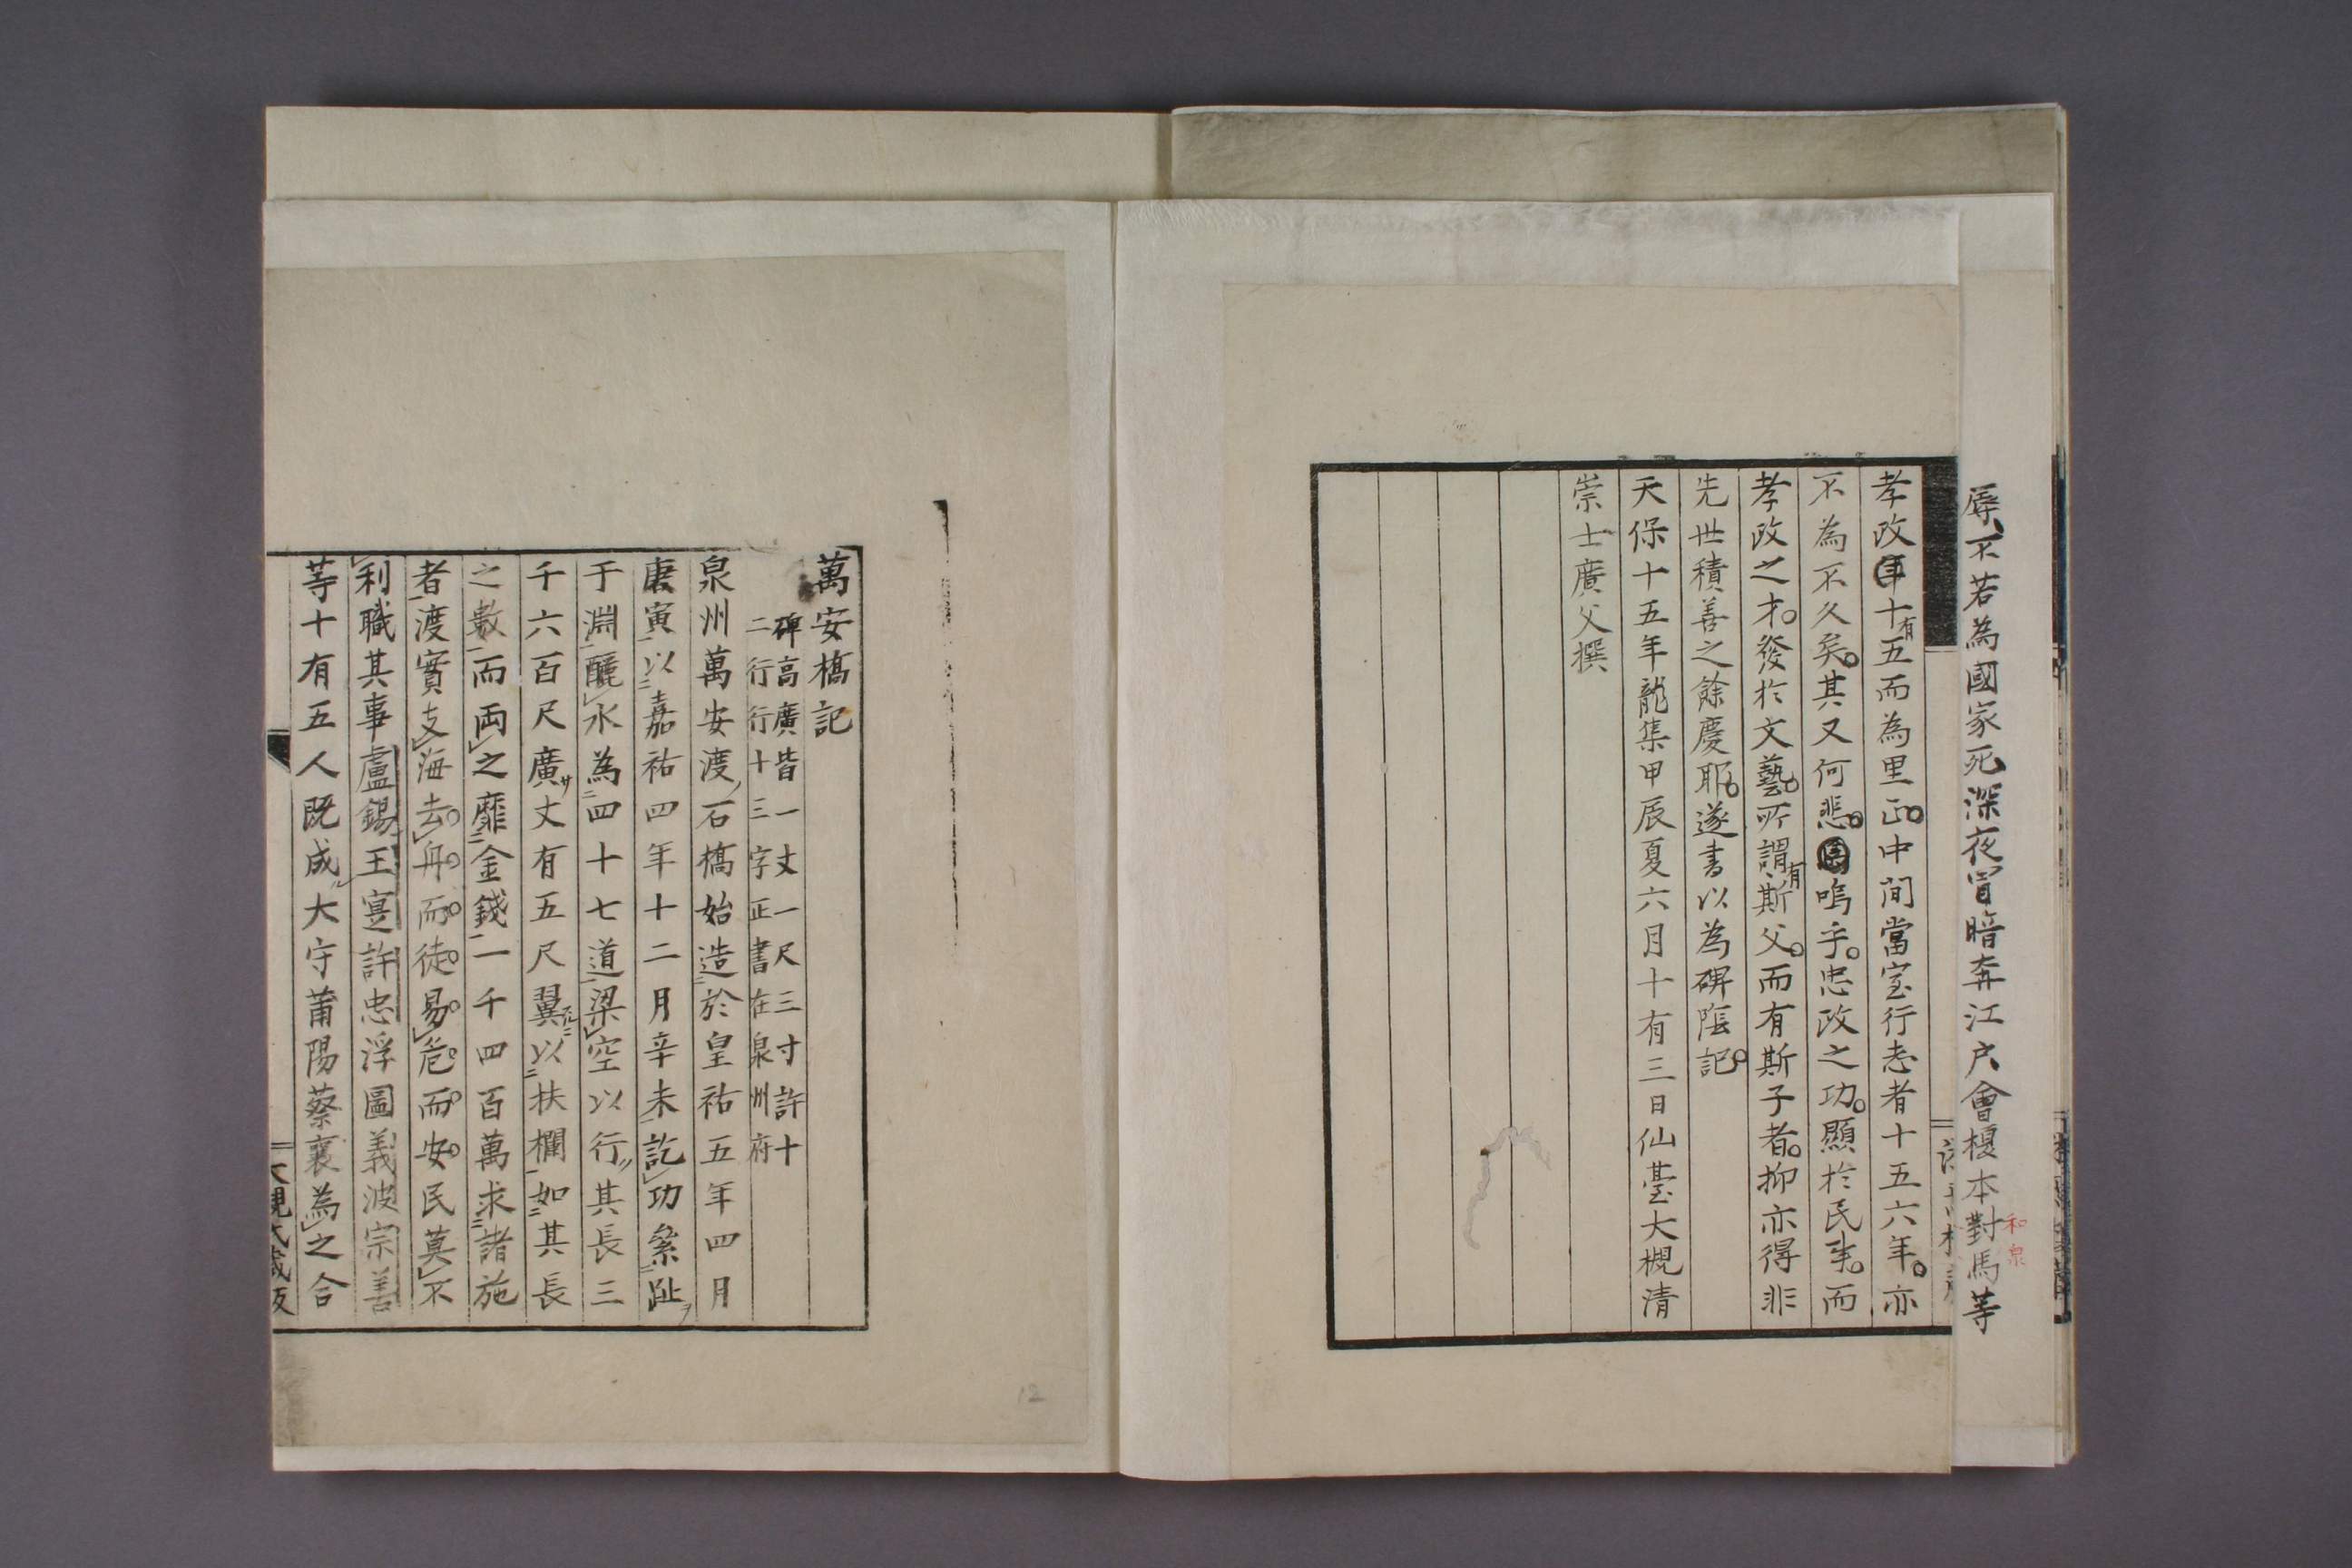 辱不若為國家死深夜冒暗奔江戶會榎本對馬等
和泉
孝政年十有五而為里正中間當室行志者十五六年亦
不為不久矣其又何悲嗚乎忠政之功顯於民事而
孝政之才發於文藝所謂有斯父而有斯子者抑亦得非
先世積善之餘慶耶遂書以為碑陰記
天保十五年龍集甲辰夏六月十有三日仙臺大槻清
崇士廣父撰
萬安橋記
碑高廣皆一丈一尺三寸許十
二行行十三字正書在泉州府
泉州萬安渡石橋始造於皇祐五年四月
庚寅以嘉祐四年十二月辛未訖功絫趾
于淵釃水為四十七道梁空以行其長三
千六百尺廣丈有五尺翼以扶欄如其長
之數而両之靡金錢一千四百萬求諸施
者渡實支海去舟而徒易危而安民莫不
利職其事盧錫王寔許忠浮圖義波宗善
等十有五人既成大守莆陽蔡襄為之合
12